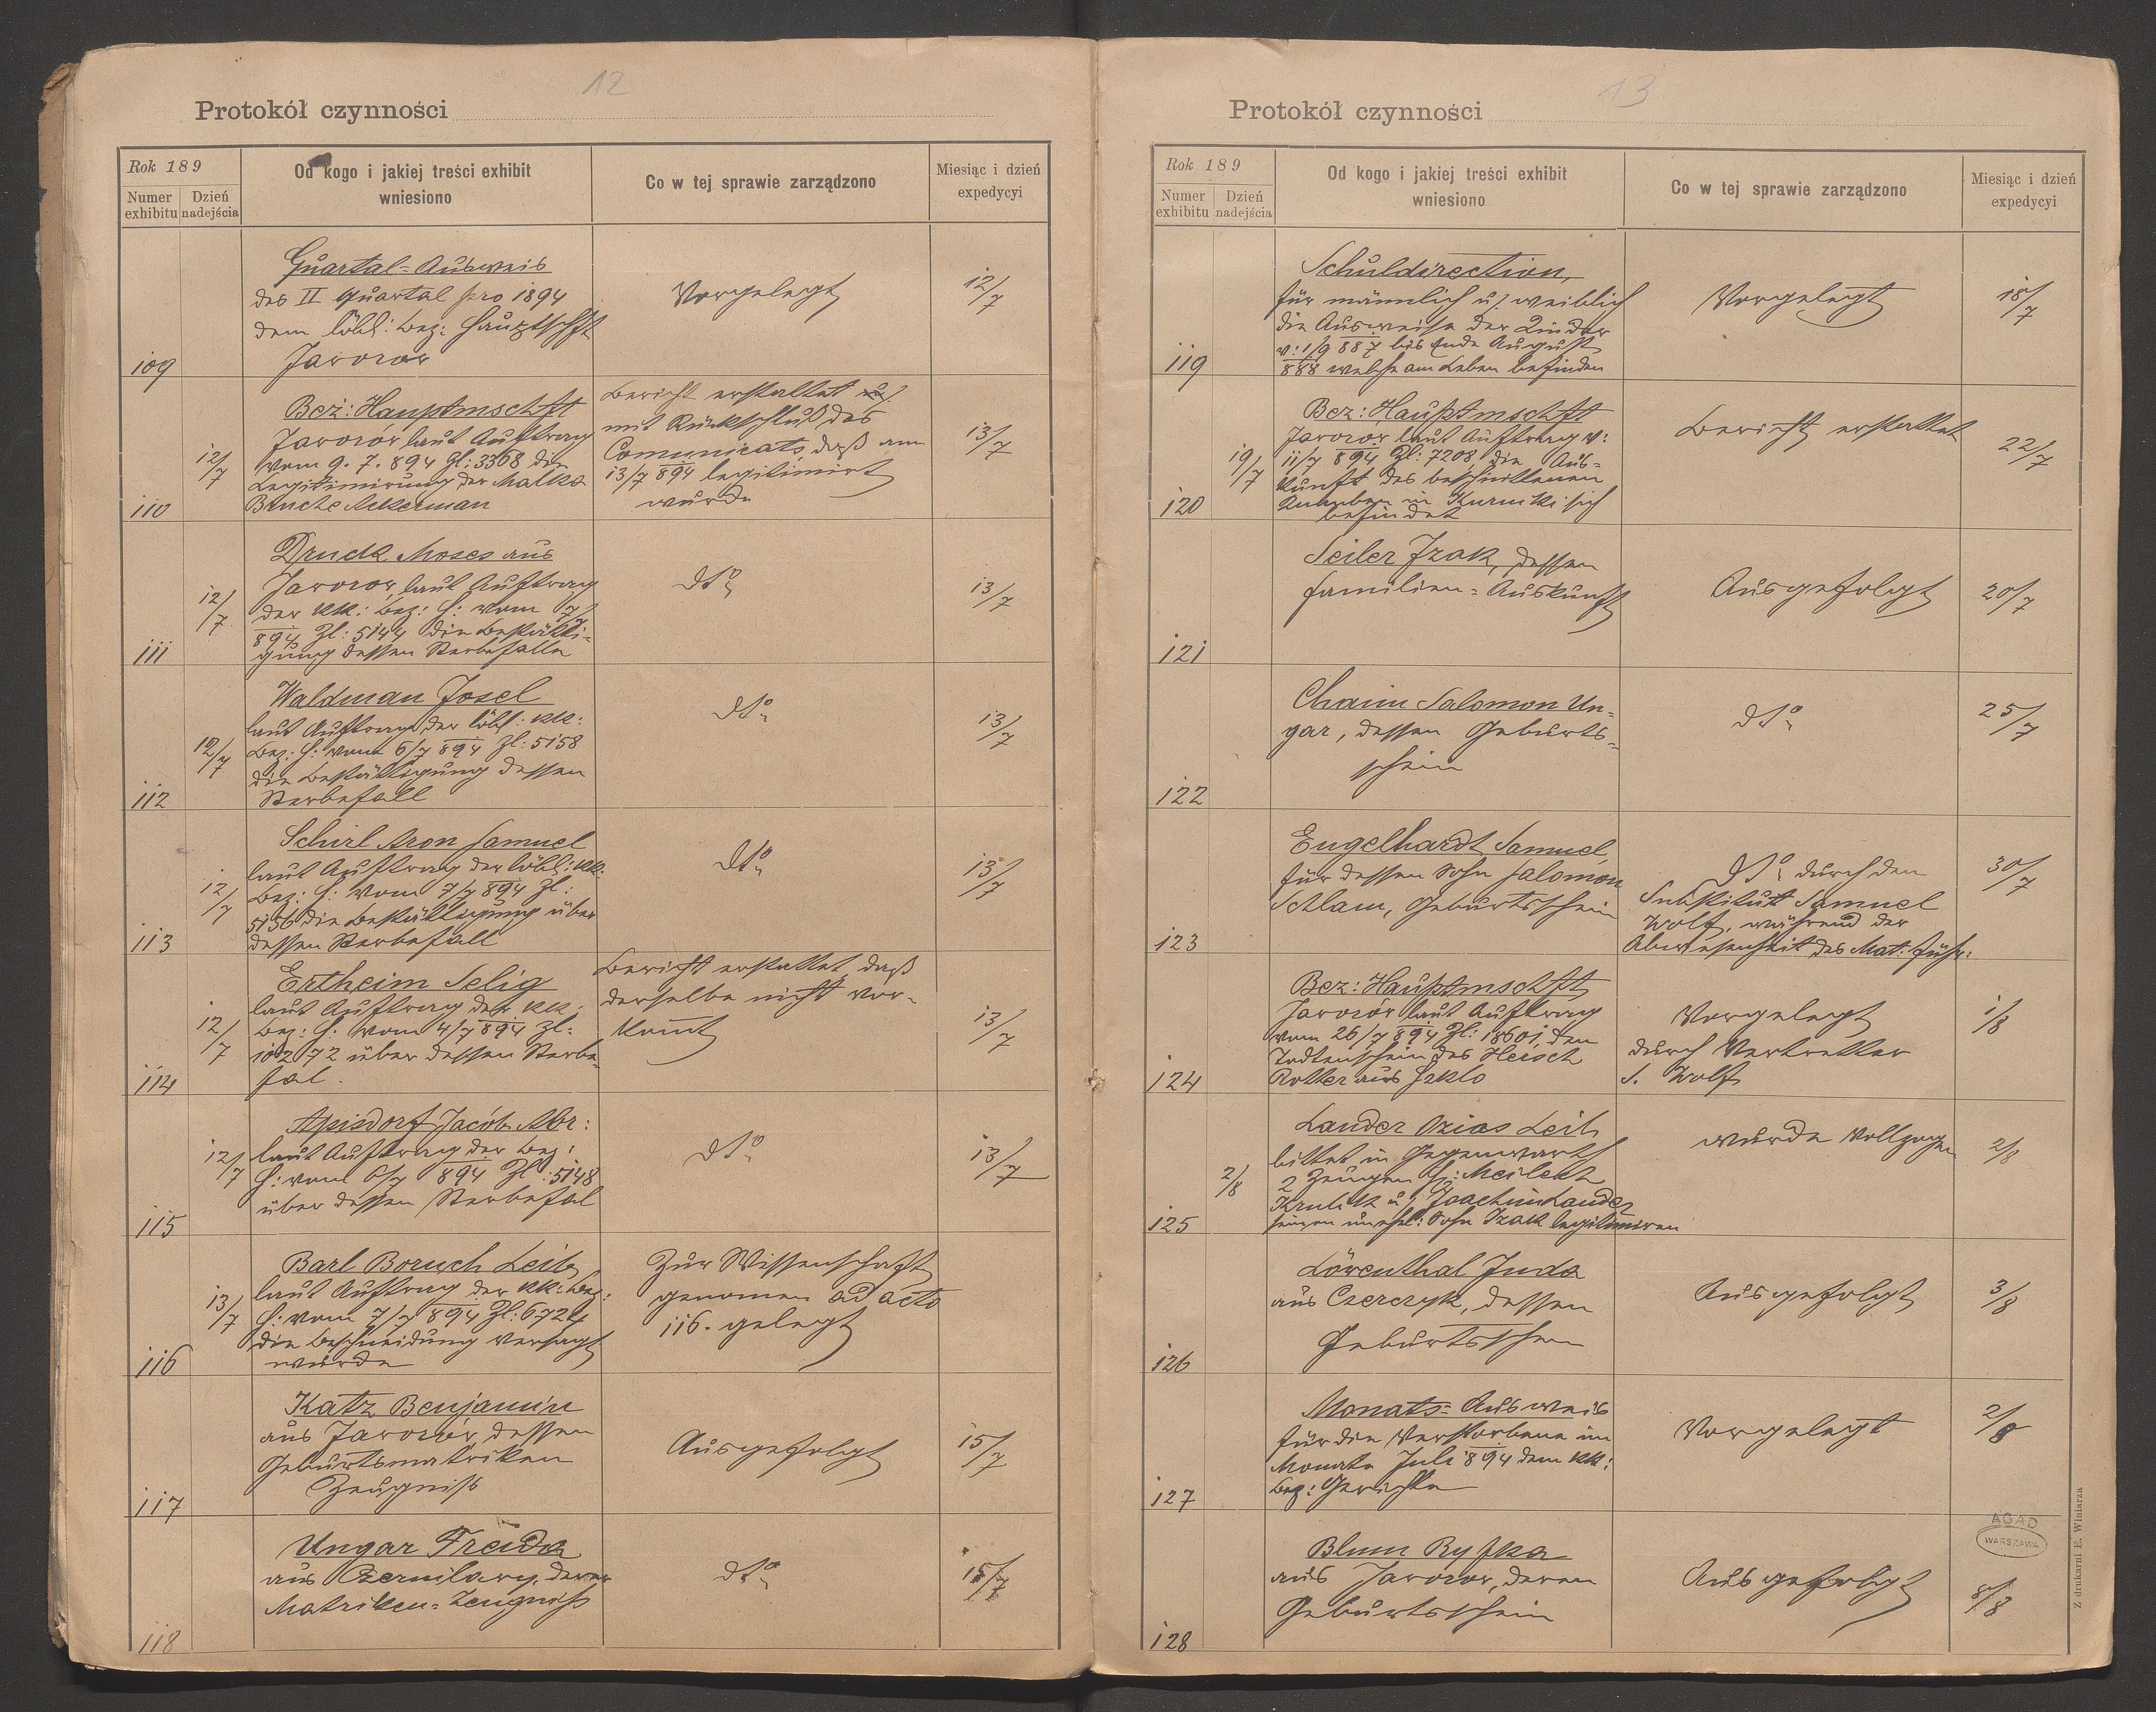 12
Protokół czynności
Rok 189
Numer exhibitu
Dzień nadejścia
Od kogo i jakiej treści exhibit wniesiono
Co w tej sprawie zarządzono
Miesiąc i dzień expedycyi
109
Quartal-Ausweis
des II Quartal pro 1894
dem löbl: Bez: Hauptschft
Javorow
Vorgelegt
12/7
110
12/7
Bez: Hauptmschft
Javorów laut Auftrag
vom 9. 7. 894 Zl: 3368 die
Legitimirung der Malka
Bruche Akerman
Bericht erstattet u/
mit Rückschluß des
Comunicats, daß am
13/7 894 legitimirt
wurde
13/7
111
12/7
Druck Moses aus
Javorow, laut Auftrag
der kk: Bez: H: vom 7/7
894 Zl: 5144 die Bestätti-
gung dessen Sterbefalle
dto
13/7
112
12/7
Waldman Josel
laut Auftrag der löbl: kk:
Bez: H: vom 6/7 894 Zl: 5158
die Bestättigung dessen
Sterbefall
dto
13/7
113
12/7
Schirl Aron Samuel
laut Auftrag der löbl: kk:
Bez: H: vom 7/7 894 Zl:
5156 die Bestättigung über
dessen Sterbefall
dto
13/7
114
12/7
Ertheim Selig
laut Auftrag der kk:
Bez: H: vom 4/7 894 Zl:
10272 über dessen Sterbe-
fal.
Bericht erstattet, daß
derselbe nicht vor-
komt
13/7
115
12/7
Apisdorf Jacób Abr:
laut Auftrag der Bez:
H: vom 6/7 894 Zl: 5148
über dessen Sterbefal
dto
13/7
116
13/7
Barl Boruch Leib
laut Auftrag der kk: Bez:
H: vom 7/7 894 Zl: 6724
die Beschneidung versagt
wurde
Zur Wissenschaft
genomen ad acto
116. gelegt
117
Katz Benjamin
aus Javorów, dessen
Geburtsmatriken
Zeugniß
Ausgefolgt
15/7
118
Ungar Freida
aus Czernilawy, deren
Matriken-Zeugniß
dto
15/7
13
Protokół czynności
Rok 189
Numer exhibitu
Dzień nadejścia
Od kogo i jakiej treści exhibit wniesiono
Co w tej sprawie zarządzono
Miesiąc i dzień expedycyi
119
Schuldirection,
für männlich u/ weiblich
die Ausweise der Kinder
v: 1/9 887 bis Ende August
888 welche am Leben befinden
Vorgelegt
18/7
120
19/7
Bez: Hauptmschft
Javorow laut Auftrag v:
11/7 894 Zl: 7208 die Aus-
kunft des beschnittenen
Knaben in Kurniki sich
befindet
Bericht erstattet
22/7
121
Seiler Izak, dessen
Familien-Auskunft
Ausgefolgt
20/7
122
Chaim Salomon Un-
gar, dessen Geburts-
schein
dto
25/7
123
Engelhardt Samuel,
für dessen Sohn Salomon
Schlam, Geburtsschein
dto durch den
Substitut Samuel
Wolf, während der
Abwesenheit des Mat: führ:
30/7
124
Bez: Hauptmschft
Javorów laut Auftrag
vom 26/7 894 Zl: 18601, den
Todtenschein des Hersch
Rotter aus Szklo
Vorgelegt
durch Vertretter
S. Wolf
1/8
125
2/8
Lander Ozias Leib
bittet in Gegenwart
2 Zeugen H: Meilech
Krulik u/ Joachim Lander
seinen unehel: Sohn Izak legitimiren
wurde vollzogen
2/8
126
Löwenthal Juda
aus Czerczyk, dessen
Geburtsschein
Ausgefolgt
3/8
127
Monats-Ausweis
für die Verstorbene im
Monate Juli 894 dem kk:
Bez: Gerichte
Vorgelegt
2/8
128
Blum Ryfka
aus Javorow, deren
Geburtsschein
Ausgefolgt
8/8
AGAD
WARSZAWA
Z drukarni E. Winiarza